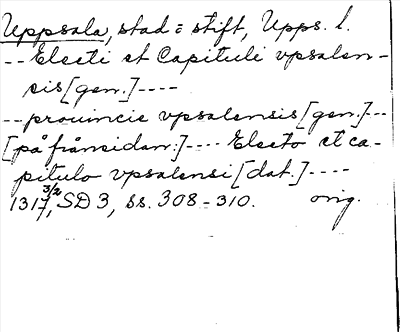 Uppsala, stad o stift, Upps. l.
-- Electi et Capituli vpsalen-
sis [gen.] ----
-- prouincie vpsalensis [gen.] ---
[på frånsidan:] ---- Electo et ca-
pitulo vpsalensi [dat.] ----
1317 3/2, SD 3, ss. 308-310. orig.